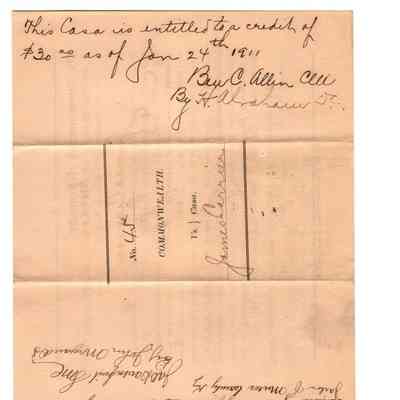 This Case is entitled to a credit of
$30 00 as of Jan 24th 1911
Ben C. Allin Clk
By H. Abraham D.C.
No. 45
COMMONWEALTH
Vs. } Case.
James Carrier
By John
Jailer of Mercer County Ky